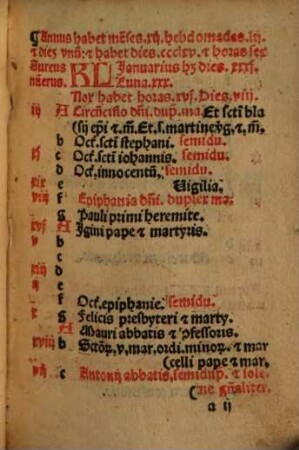 Annus habet mēses. xij. hebdomadas. lij.
⁊ dies vnū: ⁊ habet dies. ccclxv. ⁊ horas sex
Aureus KL Januarius hȝ dies. xxxj.
nūerus. Luna. xxx.
Nox habet horas. xvj. Dies. viij.
iij A Circūcisio dñi. dup. ma. Et scti bla
(sij epi ⁊ m̄. Et. s. martine v̄g, ⁊ m̄,
b Oct. scti stephani. semidu.
xi c Oct. scti iohannis. semidu.
d Oct, innocentū, semidu.
xix e Vigilia.
viij f Epiphania dñi. duplex ma.
g Pauli primi heremite.
xvj A
v b Igini pape ⁊ martyris.
c
xiij d
ij e
f Oct. epiphanie. semidu.
x g Felicis presbyteri ⁊ marty.
A Mauri abbatis ⁊ ꝯfessoris.
xviij b Sctōꝝ, v, mar. ordi. minoꝝ. ⁊ mar
(celli pape ⁊ mar,
vij c Antonij abbatis, semidup. ⁊ sole⸗
(ne gñaliter.
a ij